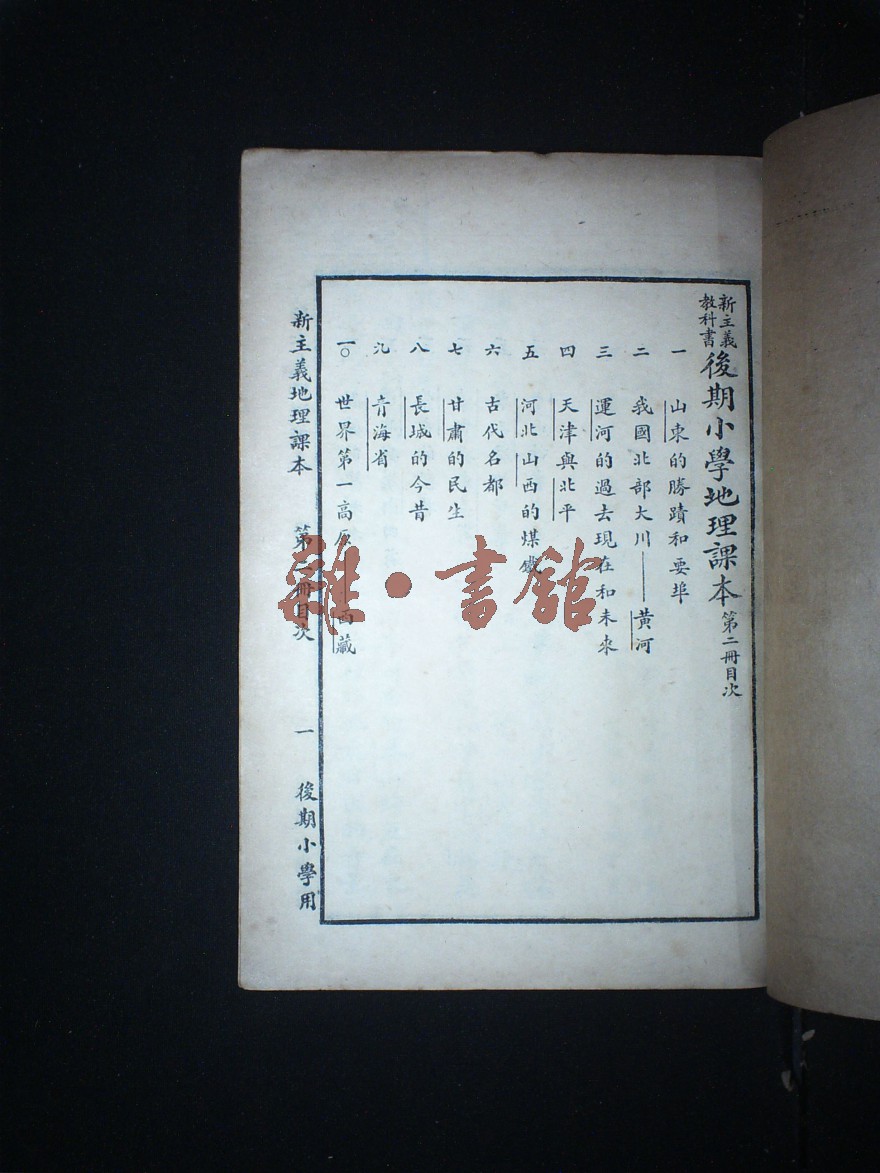 新主義教科書 後期小學地理課本 第二冊目次
一 山東的勝蹟和要埠
二 我國北部大川——黃河
三 運河的過去現在和未來
四 天津與北平
五 河北山西的煤鐵
六 古代名都
七 甘肅的民生
八 長城的今昔
九 青海省
一〇 世界第一高原——西藏
新主義地理課本 第二冊目次 一 後期小學用
雜·書館